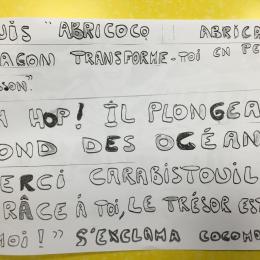 UIS "ABRICOCQ ABRICA
AGON TRANSFORME-TOI EN PE
SSON".
HOP! IL PLONGEA
OND DES OCÉAN
ERCI CARABISTOUIL
RÂCE À TOI, LE TRÉSOR EST
MOI!" S'EXCLAMA COCOMB